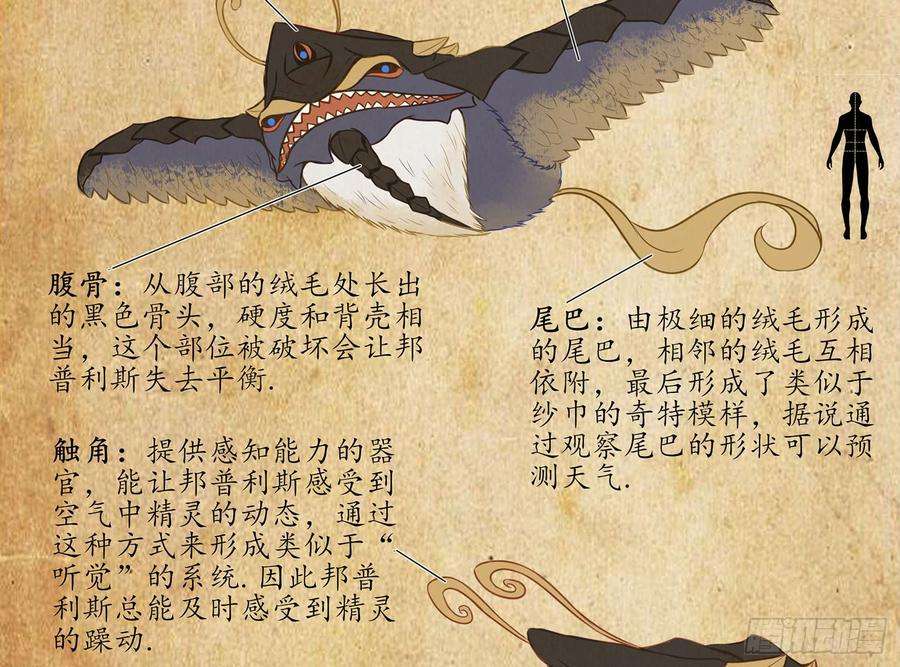 腹骨：从腹部的绒毛处长出
的黑色骨头，硬度和背壳相
当，这个部位被破坏会让邦
普利斯失去平衡.
尾巴：由极细的绒毛形成
的尾巴，相邻的绒毛互相
依附，最后形成了类似于
纱巾的奇特模样，据说通
过观察尾巴的形状可以预
测天气.
触角：提供感知能力的器
官，能让邦普利斯感受到
空气中精灵的动态，通过
这种方式来形成类似于“
听觉”的系统.因此邦普
利斯总能及时感受到精灵
的躁动.
腾讯动漫